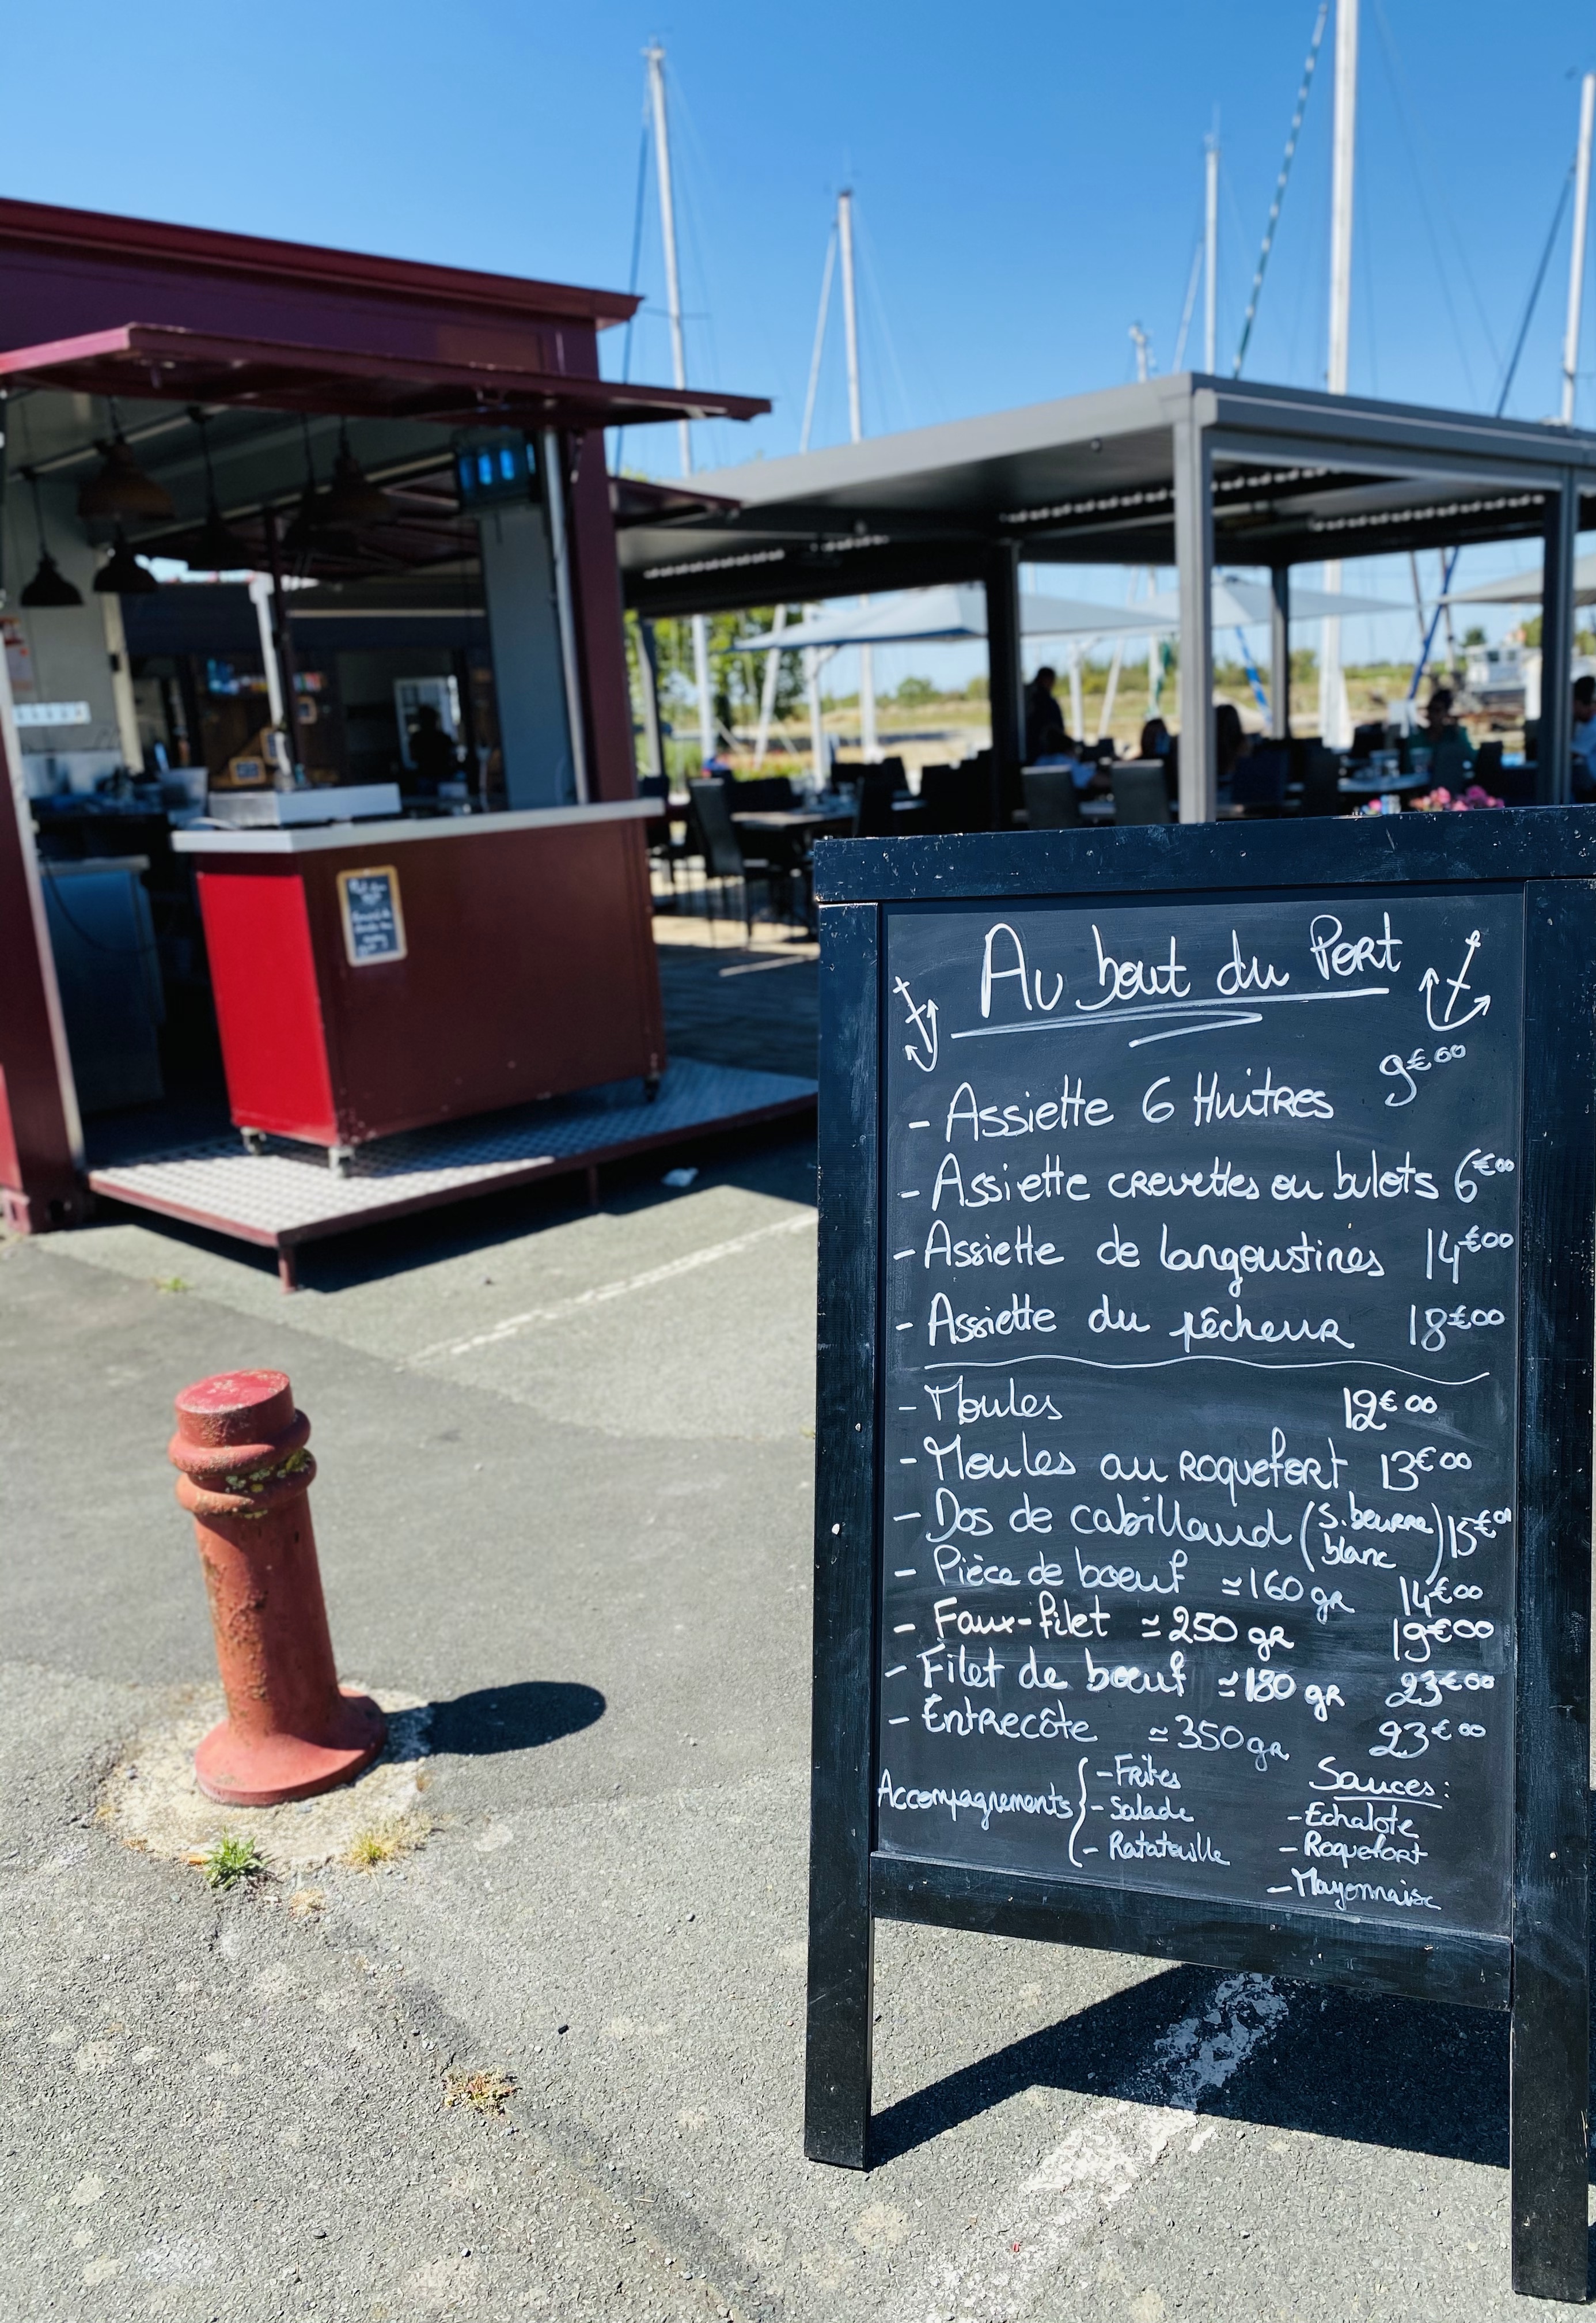 Au bout du Port
- Assiette 6 Huitres 9€00
- Assiette crevettes ou bulots 6€00
- Assiette de langoustines 14€00
- Assiette du pêcheur 18€00
- Moules 12€00
- Moules au roquefort 13€00
- Dos de cabillaud (s. beurre blanc) 15€00
- Pièce de boeuf ≃160 gr 14€00
- Faux-filet ≃250 gr 19€00
- Filet de boeuf ≃180 gr 23€00
- Entrecôte ≃350 gr 23€00
Accompagnements { - Frites
- Salade
- Ratatouille
Sauces:
- Echalote
- Roquefort
- Mayonnaise